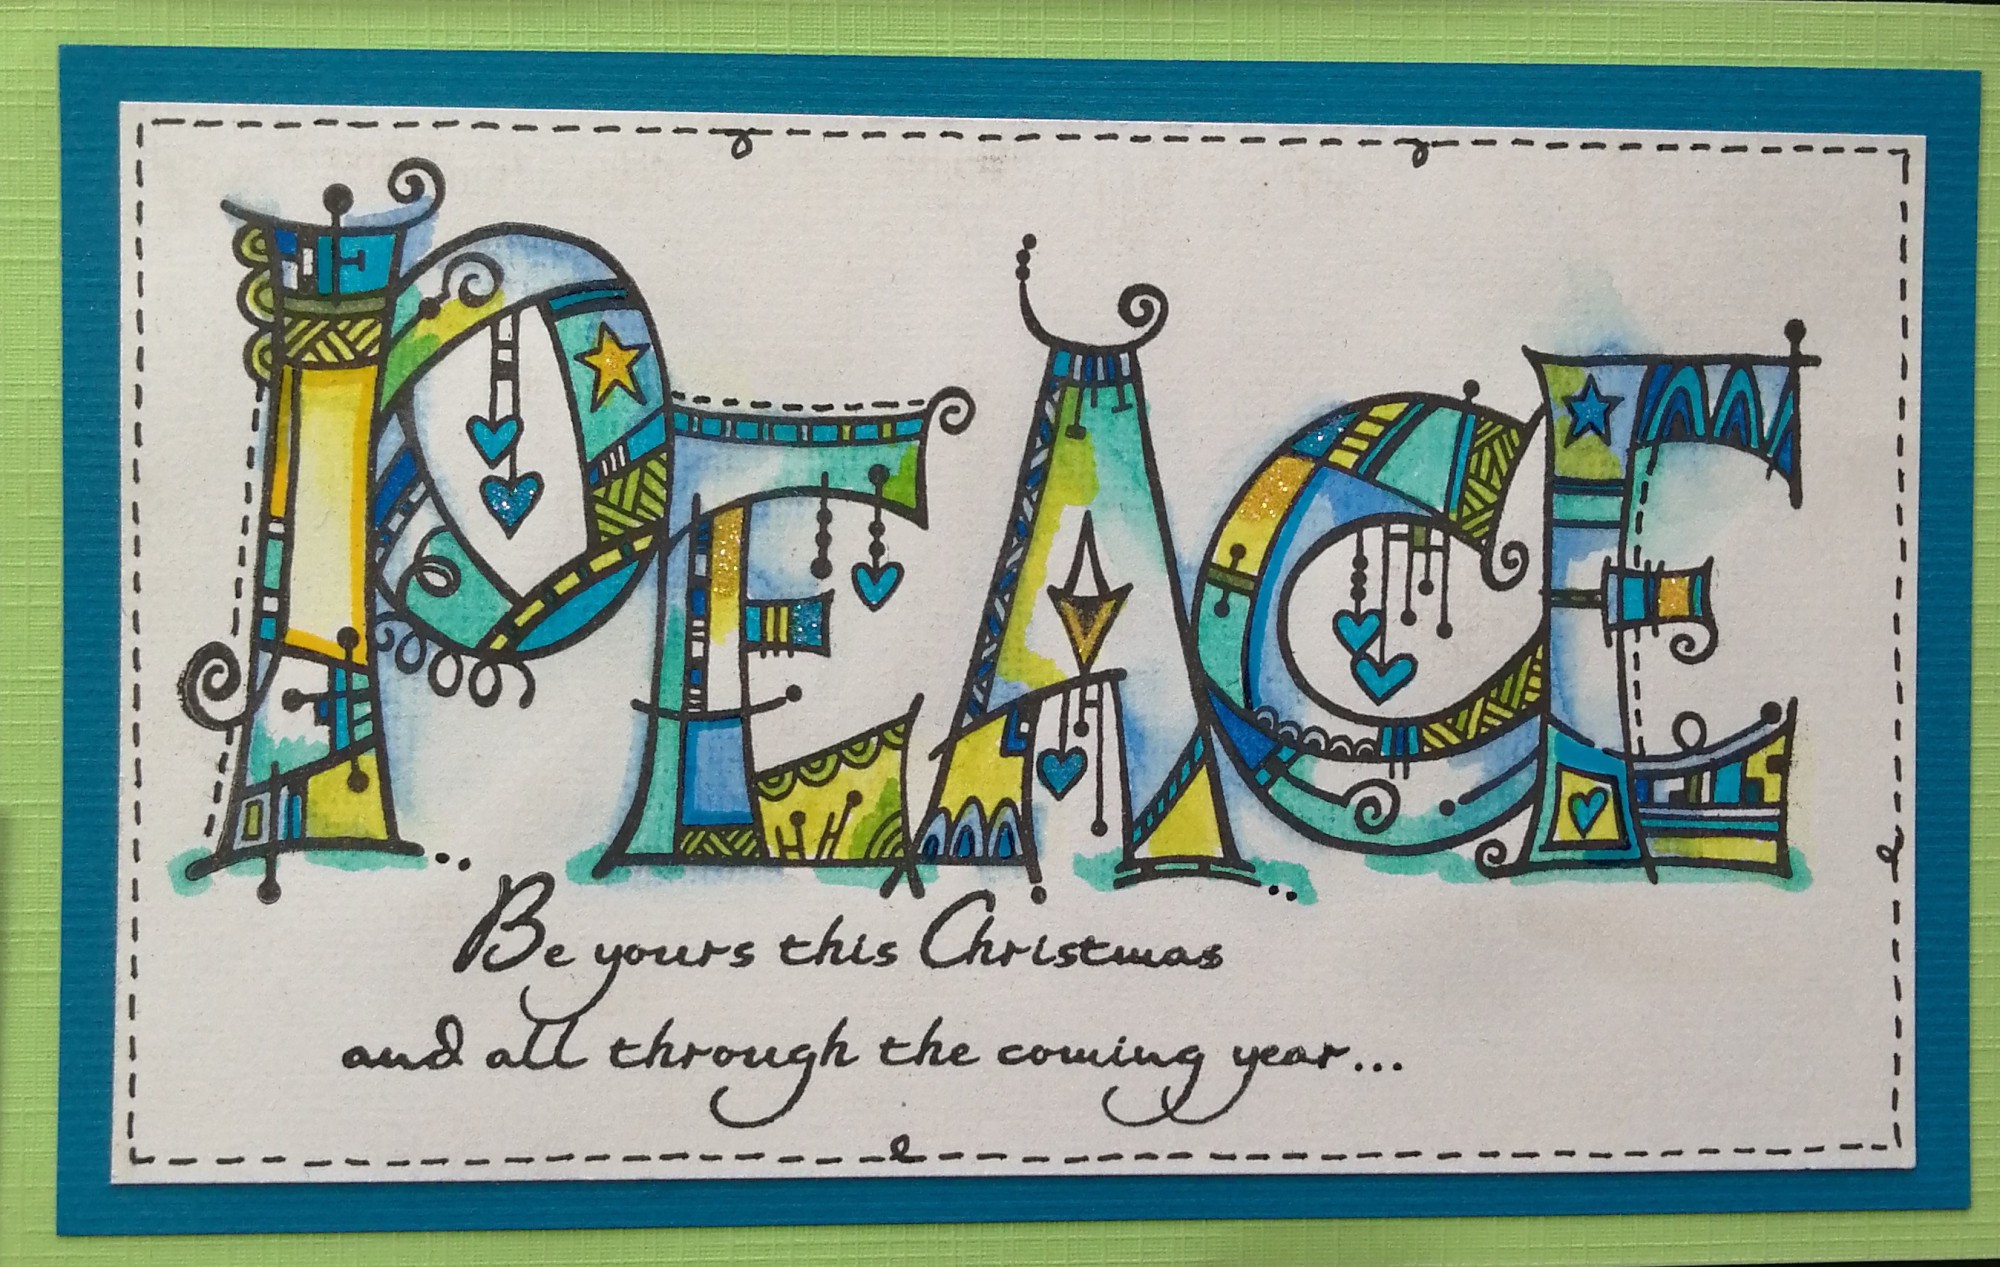 PEACE
Be yours this Christmas
and all through the coming year...